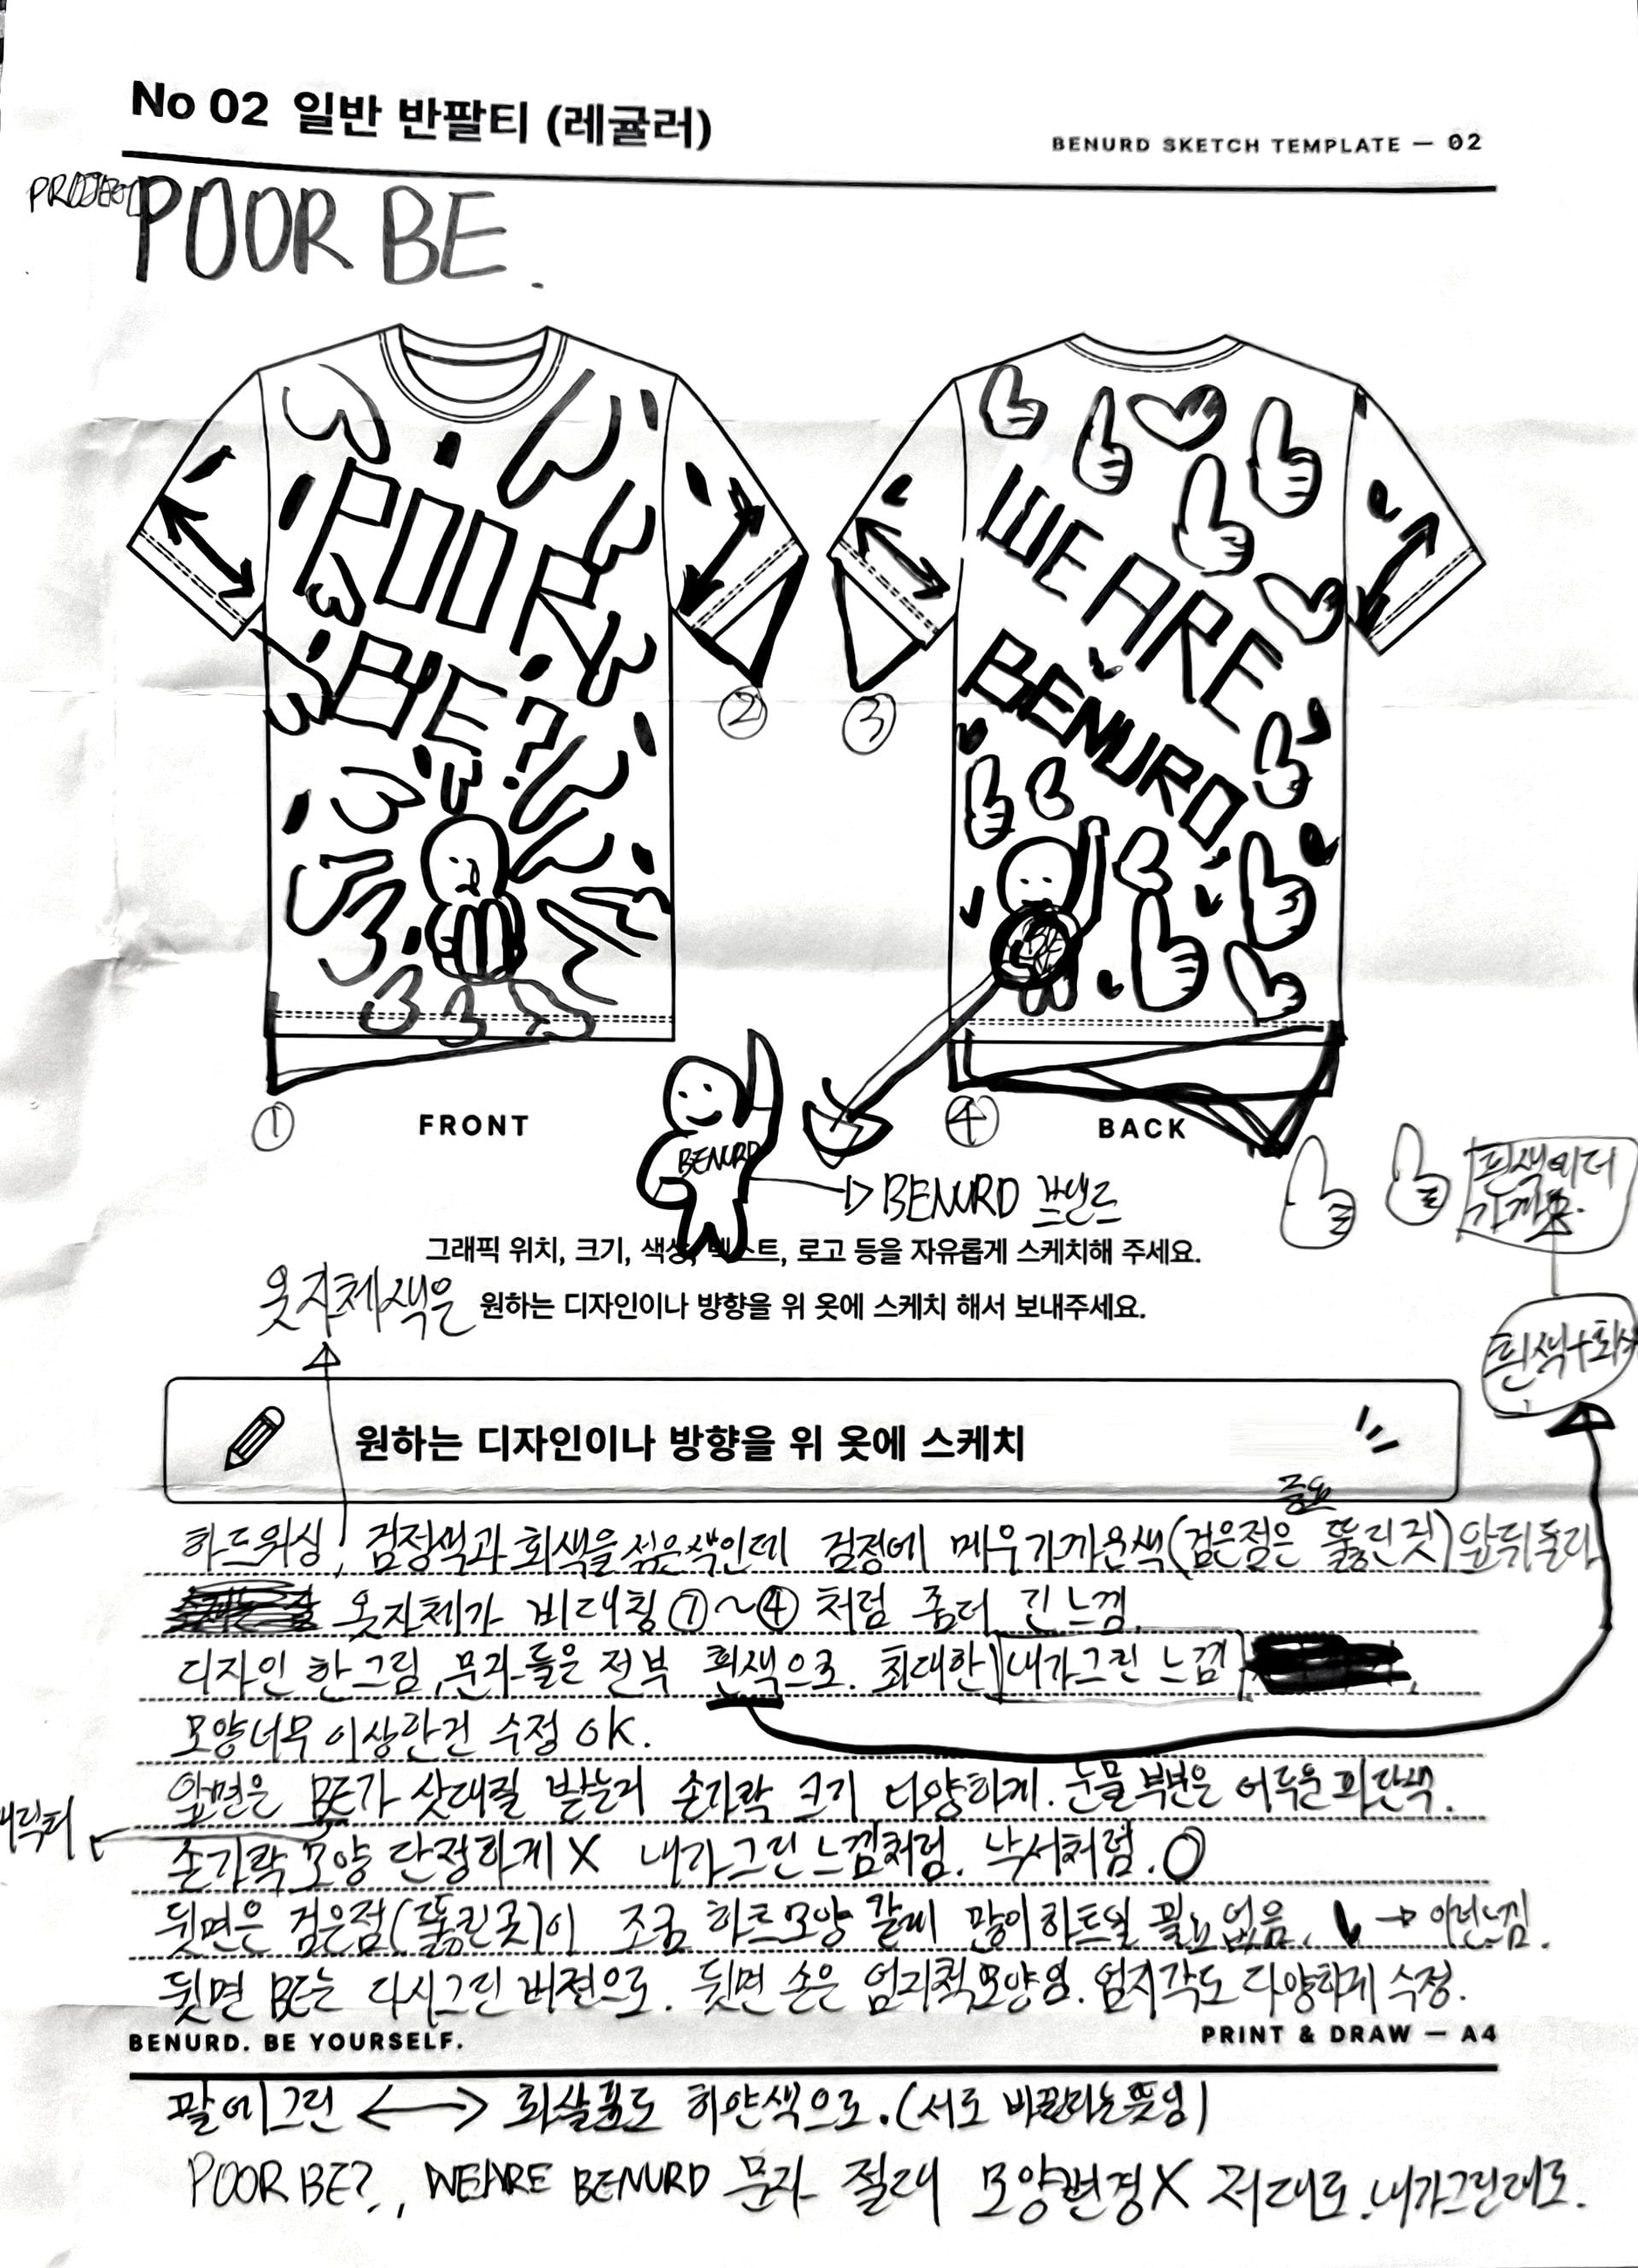 No 02 일반 반팔티 (레귤러)
BENURD SKETCH TEMPLATE — 02
PROJECT
POOR BE.
POOR
BE?
WE ARE
BENURD
②
③
①
FRONT
④
BACK
BENURD
BENURD 브랜드
흰색에 더
가까움.
그래픽 위치, 크기, 색상, 텍스트, 로고 등을 자유롭게 스케치해 주세요.
옷 자체 색은
원하는 디자인이나 방향을 위 옷에 스케치 해서 보내주세요.
흰색+회색
원하는 디자인이나 방향을 위 옷에 스케치
중요
하드워싱, 검정색과 회색을 섞은색인데 검정에 매우 가까운색(검은점은 뚫린 것) 앞뒤 둘다
옷 자체가 비대칭 ①~④ 처럼 좀더 긴 느낌.
디자인 한 그림, 문자들은 전부 흰색으로. 최대한 내가그린 느낌
모양너무 이상한건 수정 OK.
앞면은 BE가 삿대질 받는거 손가락 크기 다양하게. 눈물 부분은 어두운 파란색.
캐릭터
손가락 모양 단정하게 X 내가그린 느낌처럼. 낙서처럼. O
뒷면은 검은점(뚫린곳)이 조금 하트모양 같게 많이 하트일 필요 없음. → 이런느낌.
뒷면 BE는 다시그린 버전으로. 뒷면 손은 엄지척모양임. 엄지각도 다양하게 수정.
BENURD. BE YOURSELF.
PRINT & DRAW — A4
팔에 그린 <—> 화살표도 하얀색으로. (서로 바뀐다는 뜻임)
POOR BE?, WE ARE BENURD 문자 절대 모양변경 X 저대로. 내가그린대로.